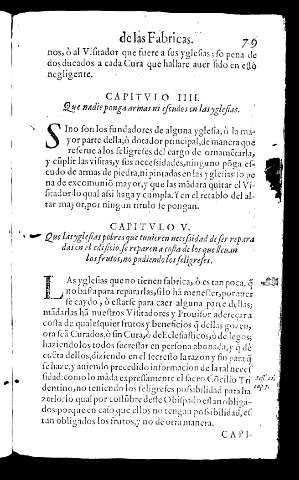 de las Fabricas. 79
nos, ò al Visitador que fuere a sus yglesias; so pena de
dos ducados a cada Cura que hallare auer sido en esto
negligente.
CAPITVLO IIII.
Que nadie ponga armas ni escudos en las yglesias.
SIno son los fundadores de alguna yglesia, ò la ma-
yor parte della, ò dotador principal, de manera que
reserue a los feligreses del cargo de ornamẽtarla,
y cũplir las visitas, y sus necesidades, ninguno põga es-
cudo de armas de piedra, ni pintadas en las yglesias: so pe
na de excomuniõ mayor, y que las mãdara quitar el Vi-
sitador: lo qual assi haga y cumpla. Y en el retablo del al-
tar mayor, por ningun titulo se pongan.
CAPITVLO V.
Que las yglesias pobres que tuuieren necesidad de ser repara
das en el edificio, se reparen a costa de los que lleuan
los frutos, no pudiendo los feligreses.
LAs yglesias que no tienen fabrica, ò es tan poca, q̃
no basta para repararlas, si lo hã menester, por auer
se caydo, ò estarse para caer alguna parte dellas;
mãdarlas hã nuestros Visitadores y Prouisor adereçar a
costa de qualequier frutos y beneficios q̃ dellas gozen,
ora sea Curados, ò sin Cura, ò de Eclesiasticos, ò de legos,
haziendolos todos secrestar en persona abonada, y q̃ dè
cuẽta dellos, diziendo en el secresto la razon y fin para q̃
se haze, y auiendo precedido informacion de la tal neces
sidad: como lo mãda expressamente el sacro Cõcilio Tri
dentino, no teniendo los feligreses posibilidad para ha-
zerlo: lo qual por costũbre deste Obispado estan obliga-
dos porque en caso que ellos no tengan possibilidad, es
tan obligados los frutos, y no de otra manera.
CAPI-